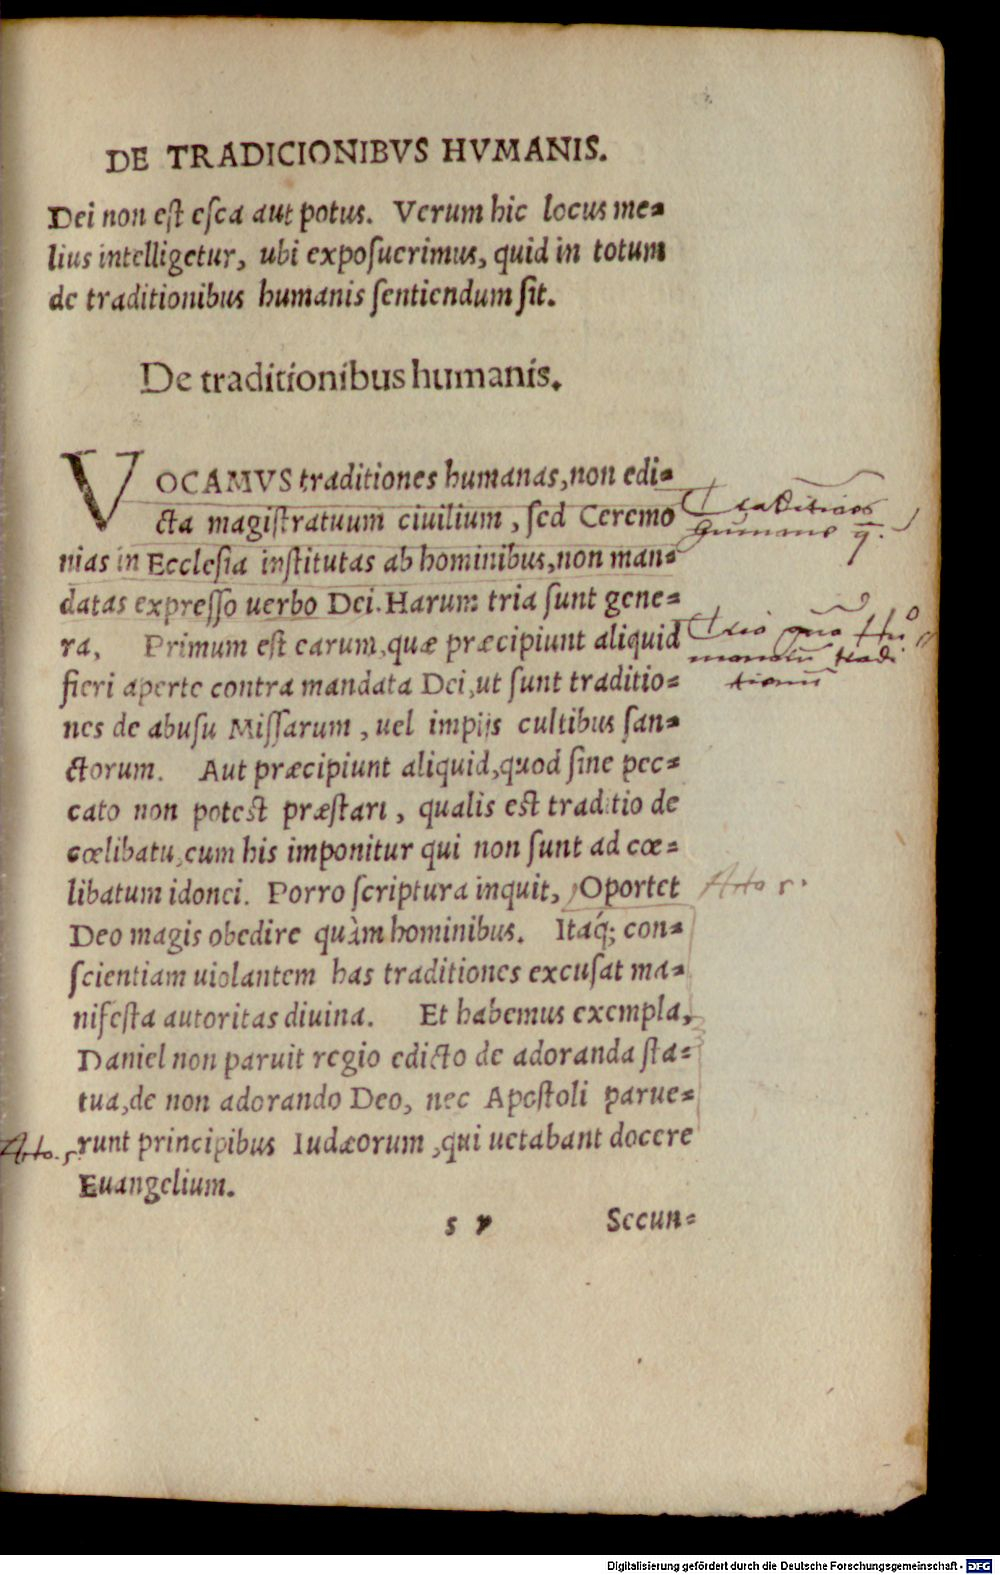 DE TRADICIONIBVS HVMANIS.
Dei non est esca aut potus. Verum hic locus me=
lius intelligetur, ubi exposuerimus, quid in totum
de traditionibus humanis sentiendum sit.
De traditionibus humanis.
VOCAMVS traditiones humanas, non edi=
cta magistratuum ciuilium, sed Ceremo
nias in Ecclesia institutas ab hominibus, non man=
datas expresso uerbo Dei. Harum tria sunt gene=
ra, Primum est earum, quæ præcipiunt aliquid
fieri aperte contra mandata Dei, ut sunt traditio=
nes de abusu Missarum, uel impijs cultibus san=
ctorum. Aut præcipiunt aliquid, quod sine pec=
cato non potest præstari, qualis est traditio de
cœlibatu, cum his imponitur qui non sunt ad cœ=
libatum idonei. Porro scriptura inquit, Oportet
Deo magis obedire quàm hominibus. Itaq́; con=
scientiam uiolantem has traditiones excusat ma=
nifesta autoritas diuina. Et habemus exempla,
Daniel non paruit regio edicto de adoranda sta=
tua, de non adorando Deo, nec Apostoli parue=
runt principibus Iudæorum, qui uetabant docere
Euangelium.
s y Secun=
Traditiones
humane
Tria
tradi
Acto 5.
Acto. 5.
Digitalisierung gefördert durch die Deutsche Forschungsgemeinschaft - DFG